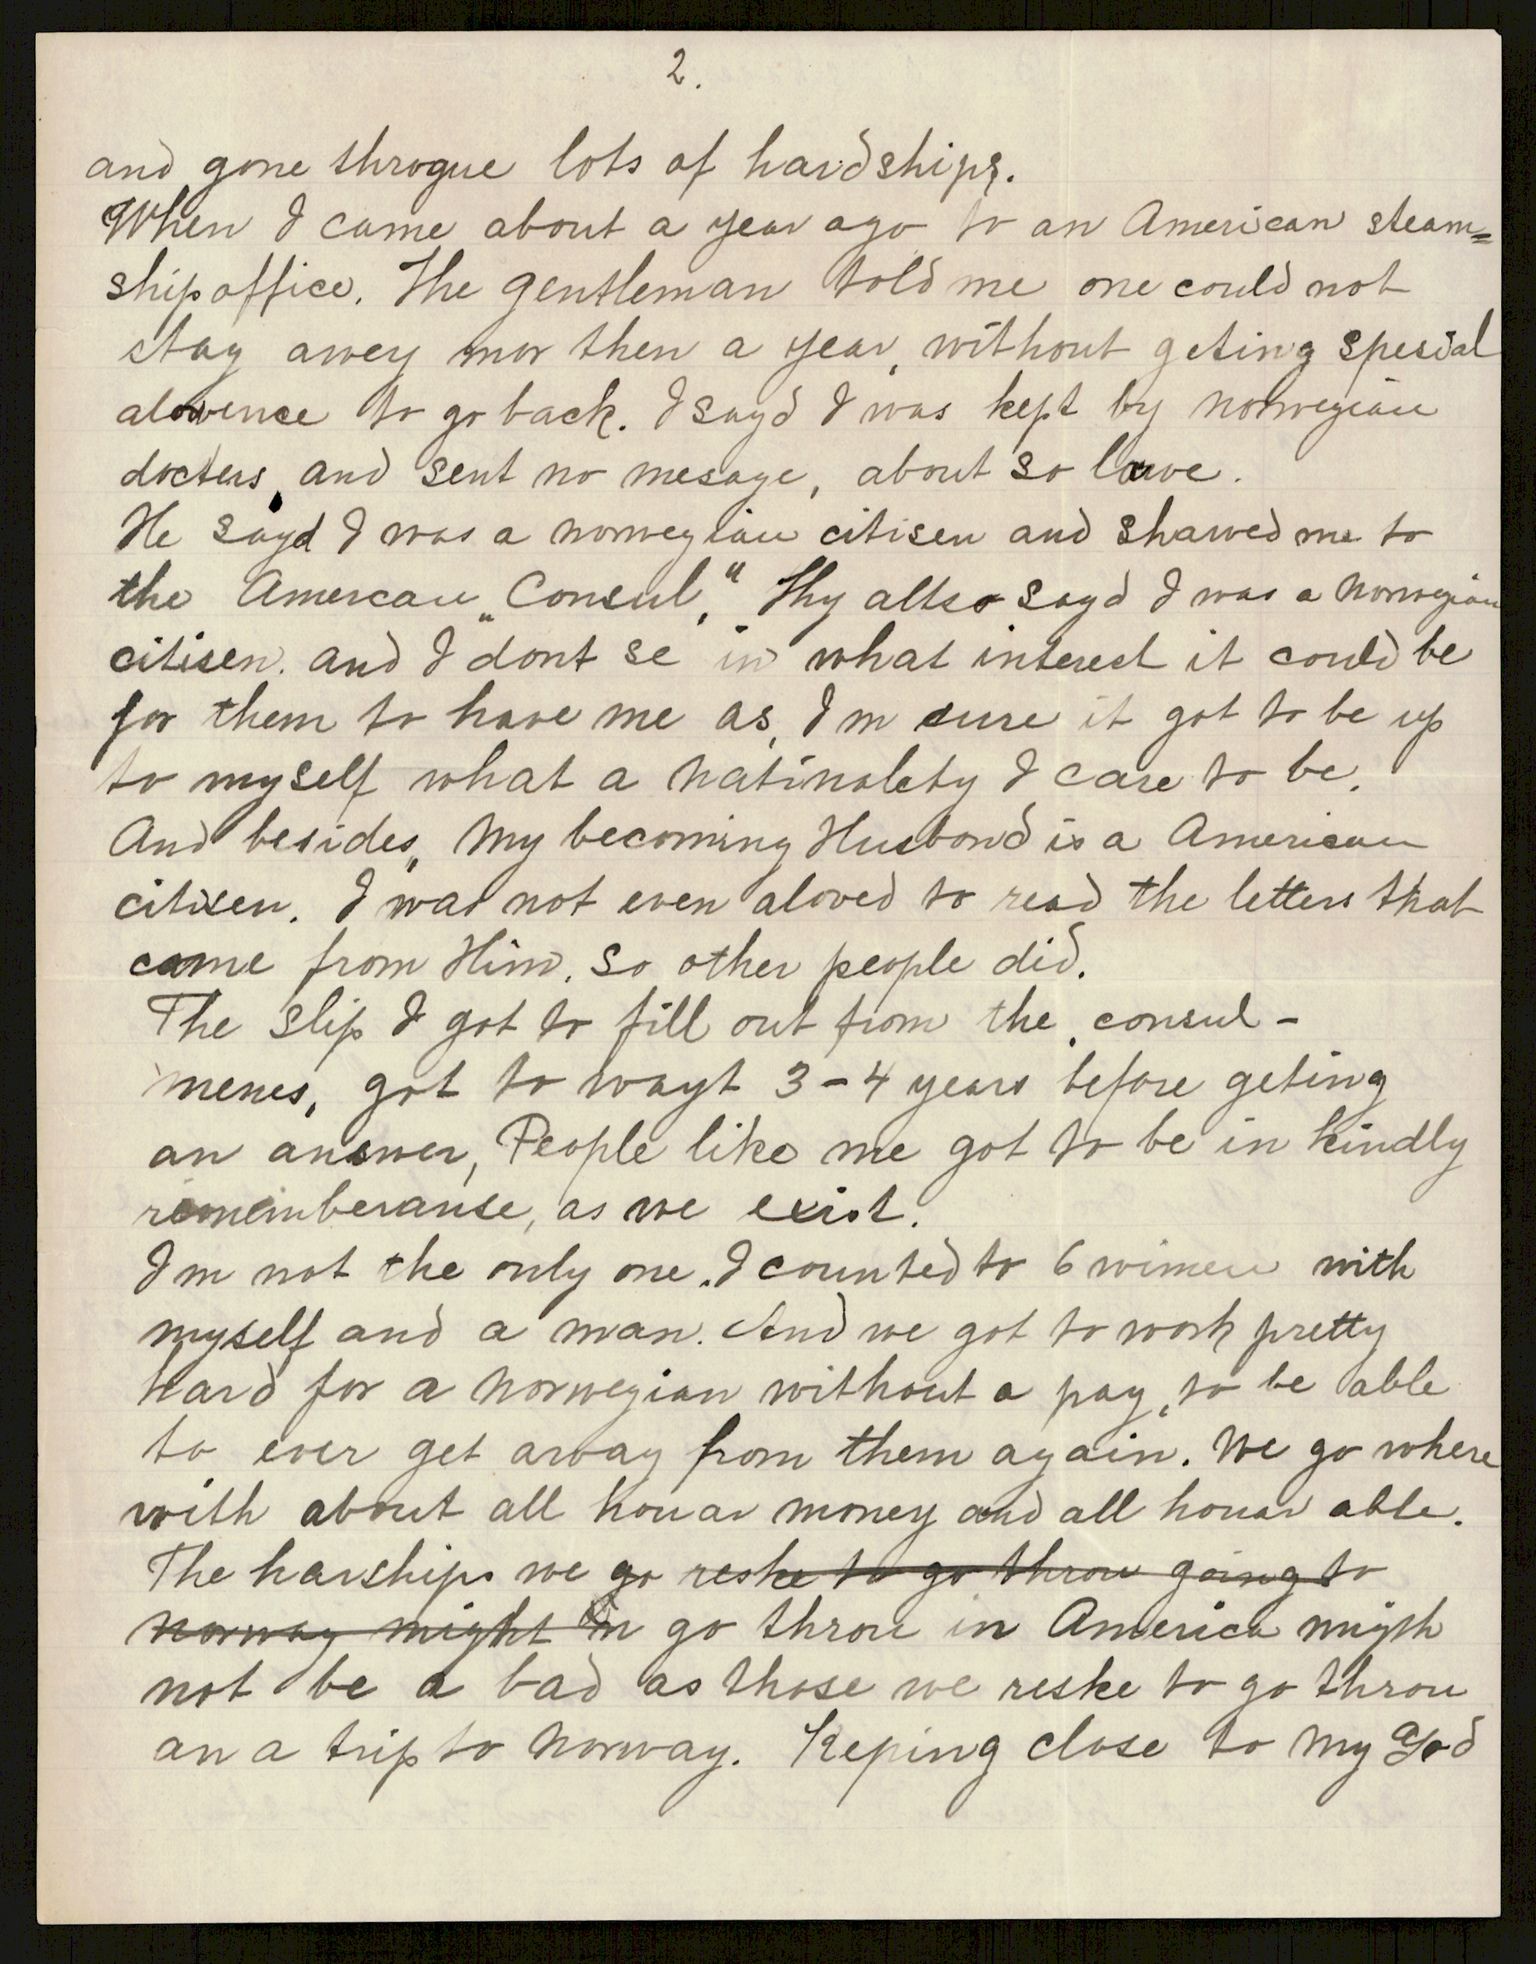 2.
and gone throgue lots of hardships.
When I came about a year ago to an American steam=
ship office. The gentleman told me one could not
stay awey mor then a year, without geting spesial
alowence to go back. I sayd I was kept by norwegian
docters, and sent no mesage, about so lowe.
He sayd I was a norwegian citisen and shawed me to
the Amercan „Consul." Thy allso sayd I was a Norwegian
citisen. and I dont se in what interest it could be
for them to have me as, I m sure it got to be up
to myself what a natinolety I care to be.
And besides, my becoming Husbond is a American
citisen. I was not even aloved to read the letters that
came from Him. So other people did.
The slip I got to fill out from the, consul-
menes, got to wayt 3-4 years before geting
an answer, People like me got to be in kindly
rememberanse, as we exist.
I m not the only one. I counted to 6 wimen with
myself and a man. And we got to work pretty
hard for a norwegian without a pay, to be able
to ever get away from them again. We go where
with about all houar money and all houar able.
The harships we go reske to go throu going to
norway might in go throu in America migth
not be a bad as those we reske to go throu
an a trip to norway. Keping close to my God